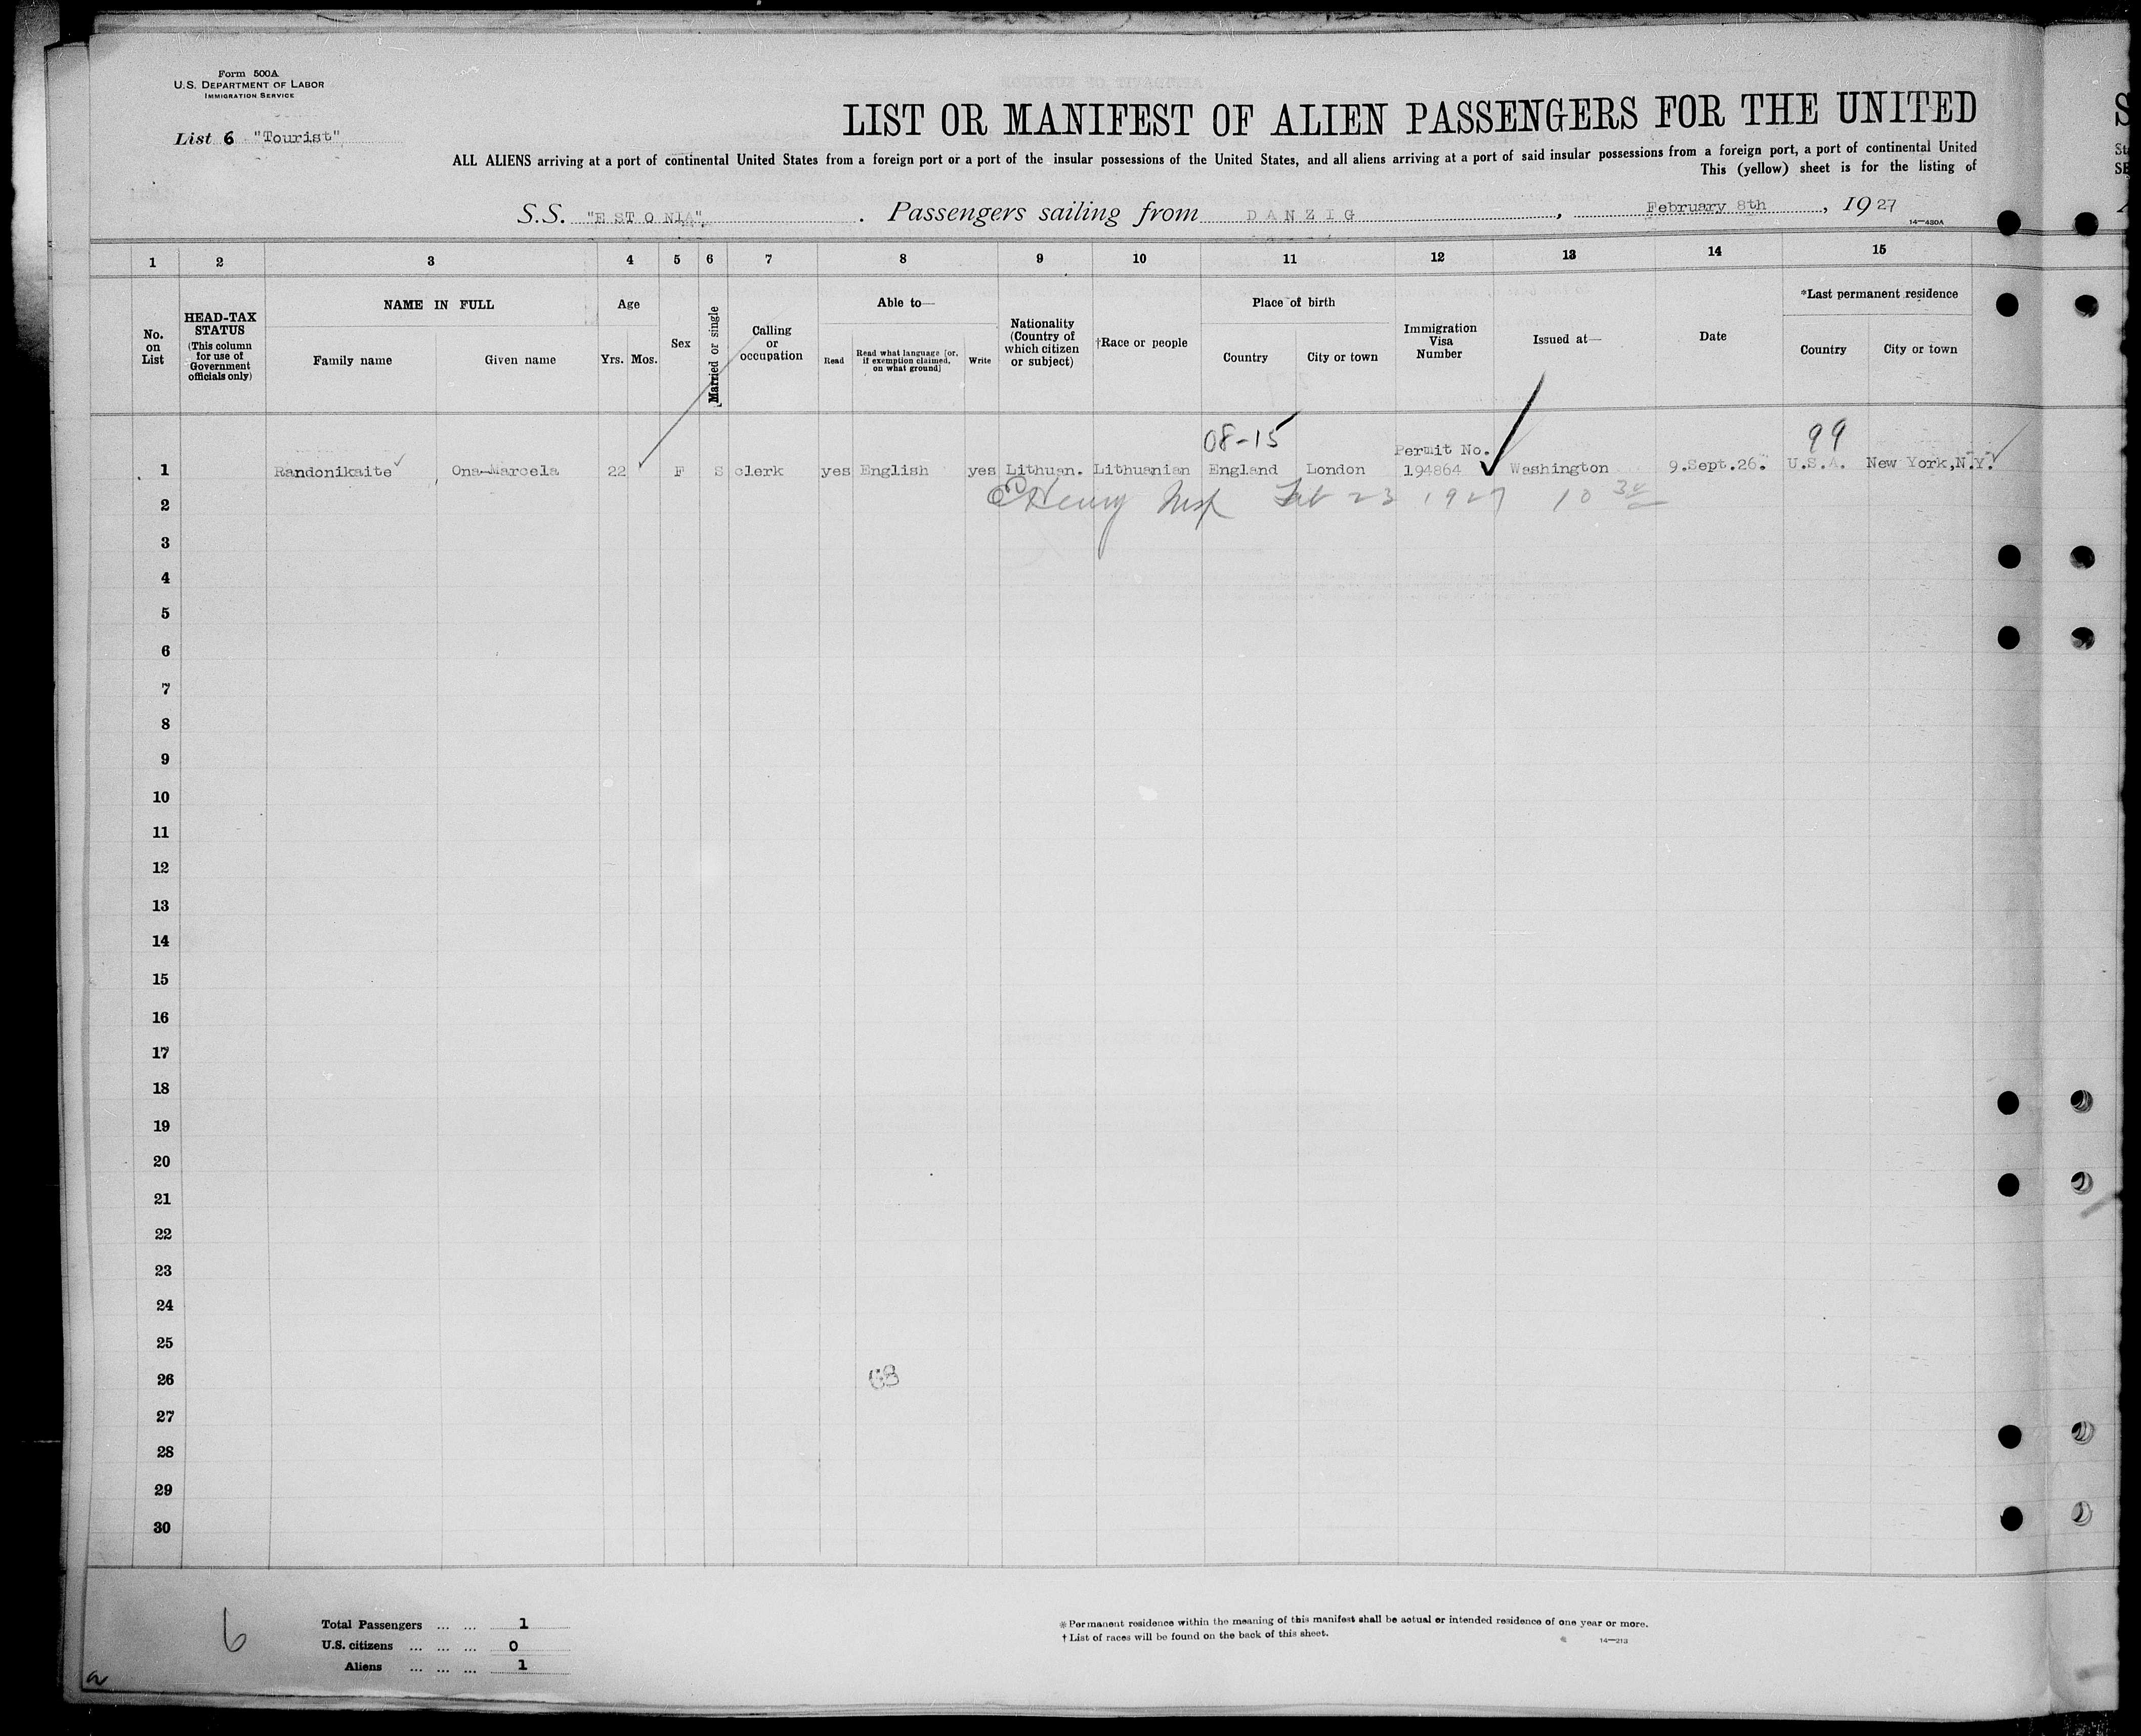 Form 500A
U.S. DEPARTMENT OF LABOR
IMMIGRATION SERVICE
List 6 "Tourist"
LIST OR MANIFEST OF ALIEN PASSENGERS FOR THE UNITED
ALL ALIENS arriving at a port of continental United States from a foreign port or a port of the insular possessions of the United States, and all aliens arriving at a port of said insular possessions from a foreign port, a port of continental United
This (yellow) sheet is for the listing of
S.S. "ESTONIA", Passengers sailing from DANZIG, February 8th, 1927
14—430A
1 2 3 4 5 6 7 8 9 10 11 12 13 14 15
No. on List
HEAD-TAX STATUS (This column for use of Government officials only)
NAME IN FULL
Family name Given name
Age
Yrs. Mos.
Sex
Married or single
Calling or occupation
Able to—
Read
Read what language [or, if exemption claimed, on what ground]
Write
Nationality (Country of which citizen or subject)
†Race or people
Place of birth
Country City or town
Immigration Visa Number
Issued at—
Date
*Last permanent residence
Country City or town
08-15 Permit No. 99
1 Randonikaite Ona-Marcela 22 F S clerk yes English yes Lithuan. Lithuanian England London 194864 Washington 9.Sept.26. U.S.A. New York,N.Y.
2 Henry Insp Feb 23 1927 10 30
3
4
5
6
7
8
9
10
11
12
13
14
15
16
17
18
19
20
21
22
23
24
25
26
27
28
29
30
6
Total Passengers ... ... 1
U.S. citizens ... ... ... 0
Aliens ... ... ... 1
* Permanent residence within the meaning of this manifest shall be actual or intended residence of one year or more.
† List of races will be found on the back of this sheet.
14—213